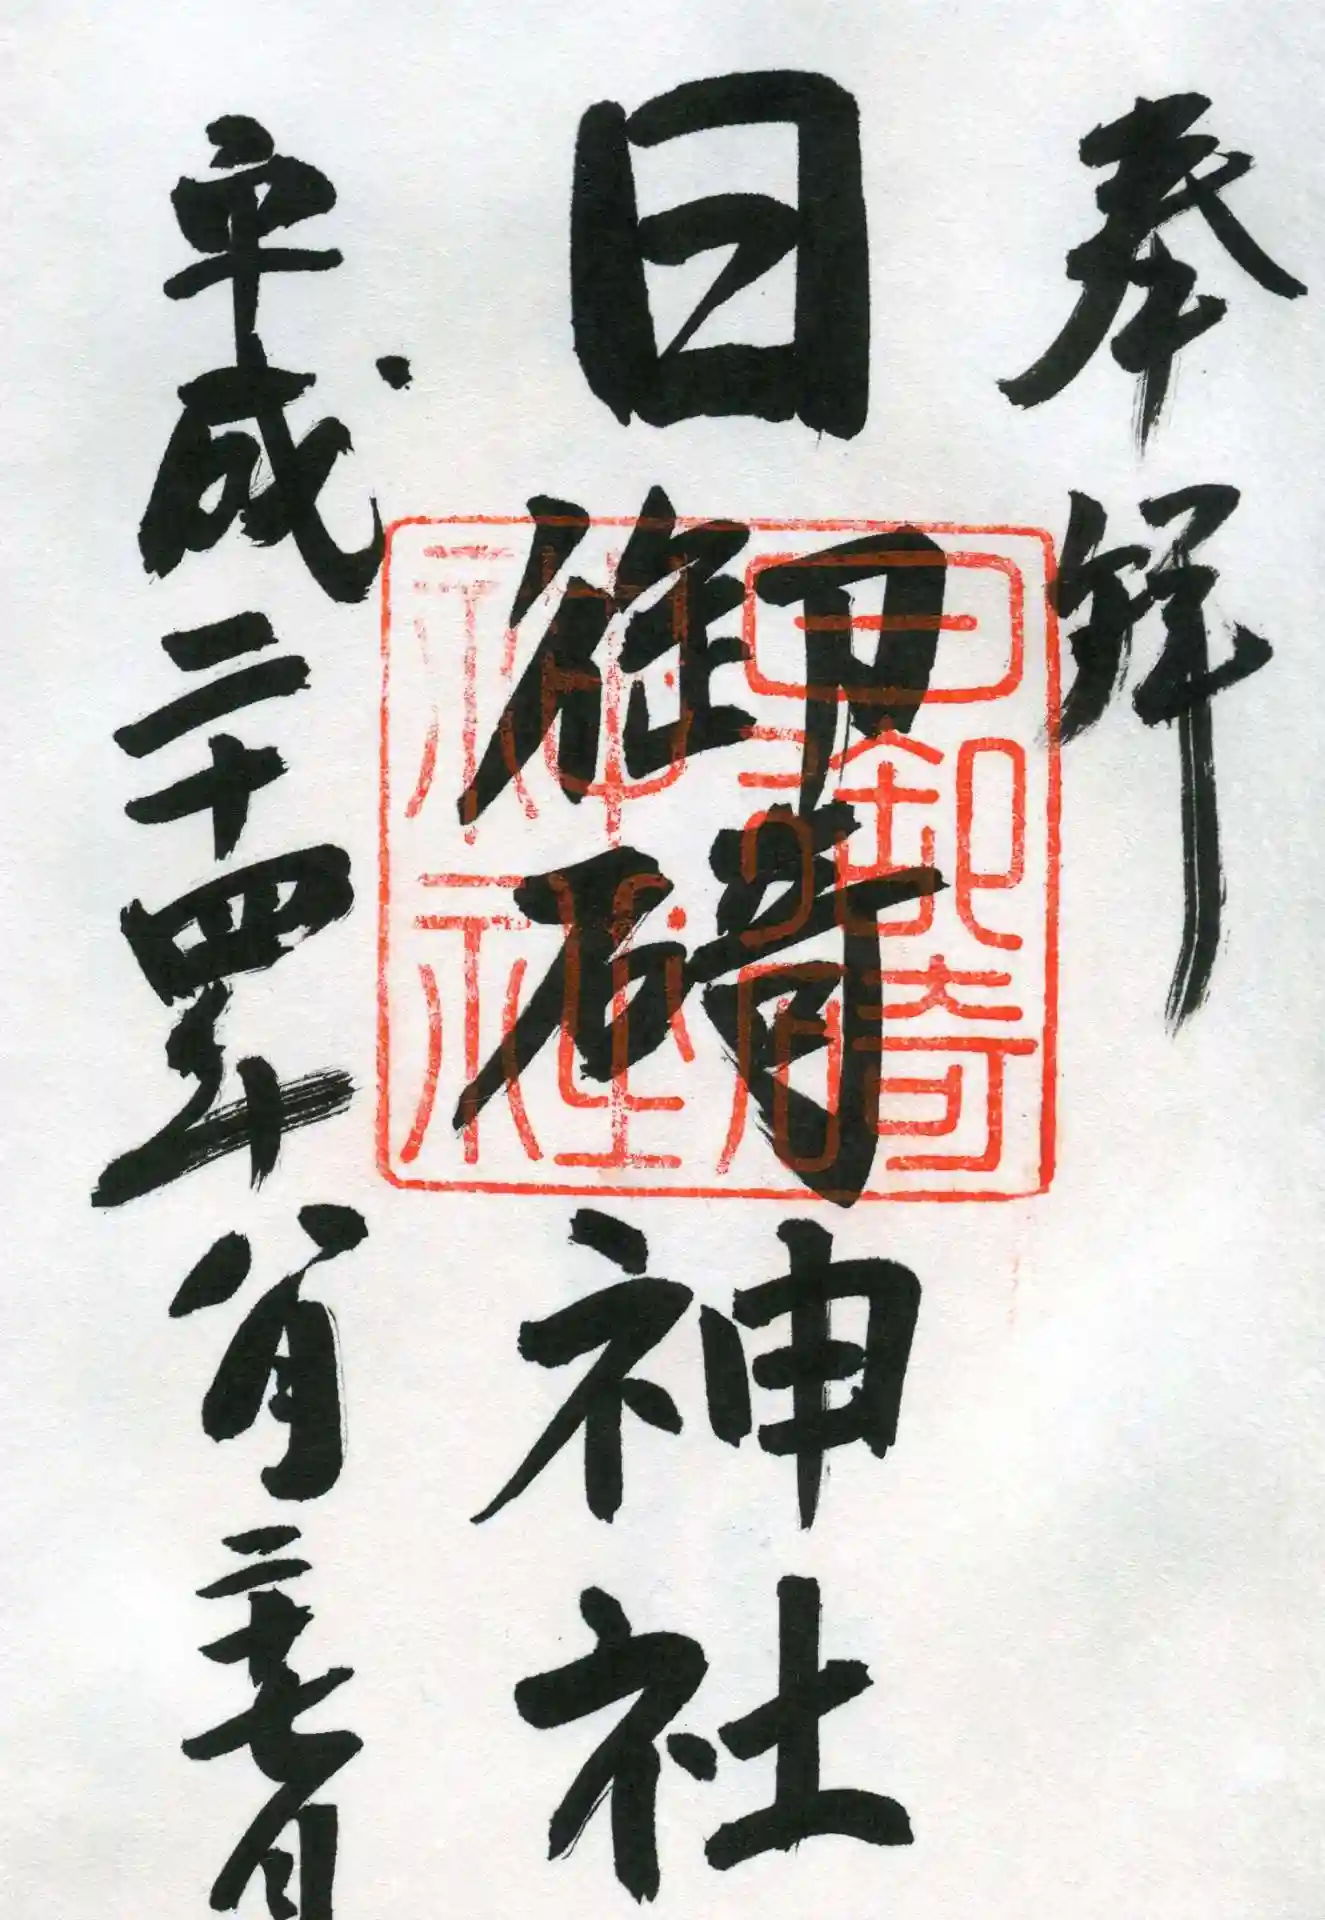 奉拝
日御碕神社
平成二十四年八月二十七日
日御碕
神社